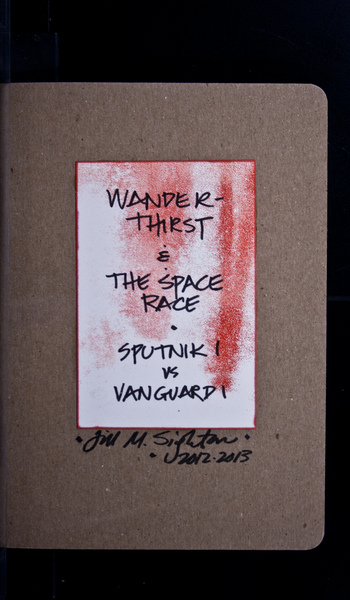 WANDER-
THIRST
&
THE SPACE
RACE
•
SPUTNIK 1
VS
VANGUARD 1
• Jill M. •
• 2012-2013